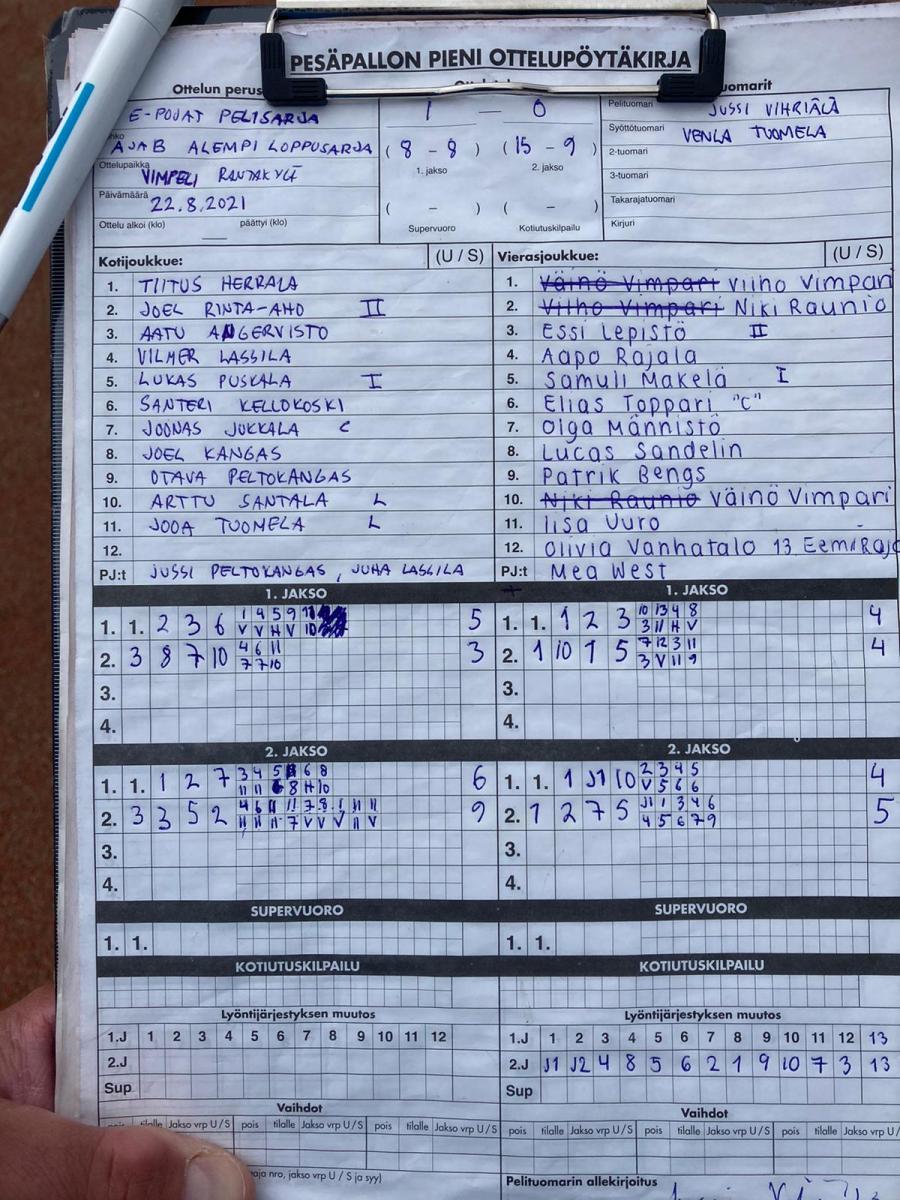 PESÄPALLON PIENI OTTELUPÖYTÄKIRJA
Ottelun perus
uomarit
E-POJAT PELISARJA
1 — 0
Pelituomari JUSSI VIHRIÄLÄ
A JA B ALEMPI LOPPUSARJA
( 8 - 8 ) ( 15 - 9 )
1. jakso 2. jakso
Syöttötuomari VENLA TUOMELA
Ottelupaikka VIMPELI
2-tuomari
3-tuomari
Päivämäärä 22.8.2021
( - ) ( - )
Takarajatuomari
Ottelu alkoi (klo) päättyi (klo)
Supervuoro Kotiutuskilpailu
Kirjuri
Kotijoukkue: (U / S)
1. TIITUS HERRALA
2. JOEL RINTA-AHO II
3. AATU ANGERVISTO
4. VILMER LASSILA
5. LUKAS PUSKALA I
6. SANTERI KELLOKOSKI
7. JOONAS JUKKALA C
8. JOEL KANGAS
9. OTAVA PELTOKANGAS
10. ARTTU SANTALA L
11. JOOA TUOMELA L
12.
PJ:t JUSSI PELTOKANGAS, JUHA LASSILA
Vierasjoukkue: (U / S)
1. Väinö Vimpari Viiho Vimpari
2. Viiho Vimpari Niki Raunio
3. Essi Lepistö II
4. Aapo Rajala
5. Samuli Mäkelä I
6. Elias Toppari "C"
7. Olga Männistö
8. Lucas Sandelin
9. Patrik Bengs
10. Niki Raunio Väinö Vimpari
11. Iisa Uuro
12. Olivia Vanhatalo 13 Eemi Raja
PJ:t Mea West
1. JAKSO
1. 1. 2 3 6 5
2. 3 8 7 10 4 6 11 3
7 7 10
3.
4.
1. JAKSO
1. 1. 1 2 3 10 13 4 8 4
3 11 H V
2. 1 10 1 5 7 12 3 11 4
3 V 11 9
3.
4.
2. JAKSO
1. 1. 1 2 7 6
2. 3 3 5 2 9
3.
4.
2. JAKSO
1. 1. 1 J1 10 2 3 4 5 4
V 5 6 6
2. 1 2 7 5 J1 1 3 4 6 5
4 5 6 7 9
3.
4.
SUPERVUORO
1. 1.
SUPERVUORO
1. 1.
KOTIUTUSKILPAILU
KOTIUTUSKILPAILU
Lyöntijärjestyksen muutos
1.J 1 2 3 4 5 6 7 8 9 10 11 12
2.J
Sup
Lyöntijärjestyksen muutos
1.J 1 2 3 4 5 6 7 8 9 10 11 12 13
2.J J1 J2 4 8 5 6 2 1 9 10 7 3 13
Sup
Vaihdot
pois tilalle Jakso vrp U / S pois tilalle Jakso vrp U / S pois tilalle Jakso vrp U / S
Vaihdot
pois tilalle Jakso vrp U / S pois tilalle Jakso vrp U / S pois tilalle Jakso vrp U
aja nro, jakso vrp U / S ja syy)
Pelituomarin allekirjoitus